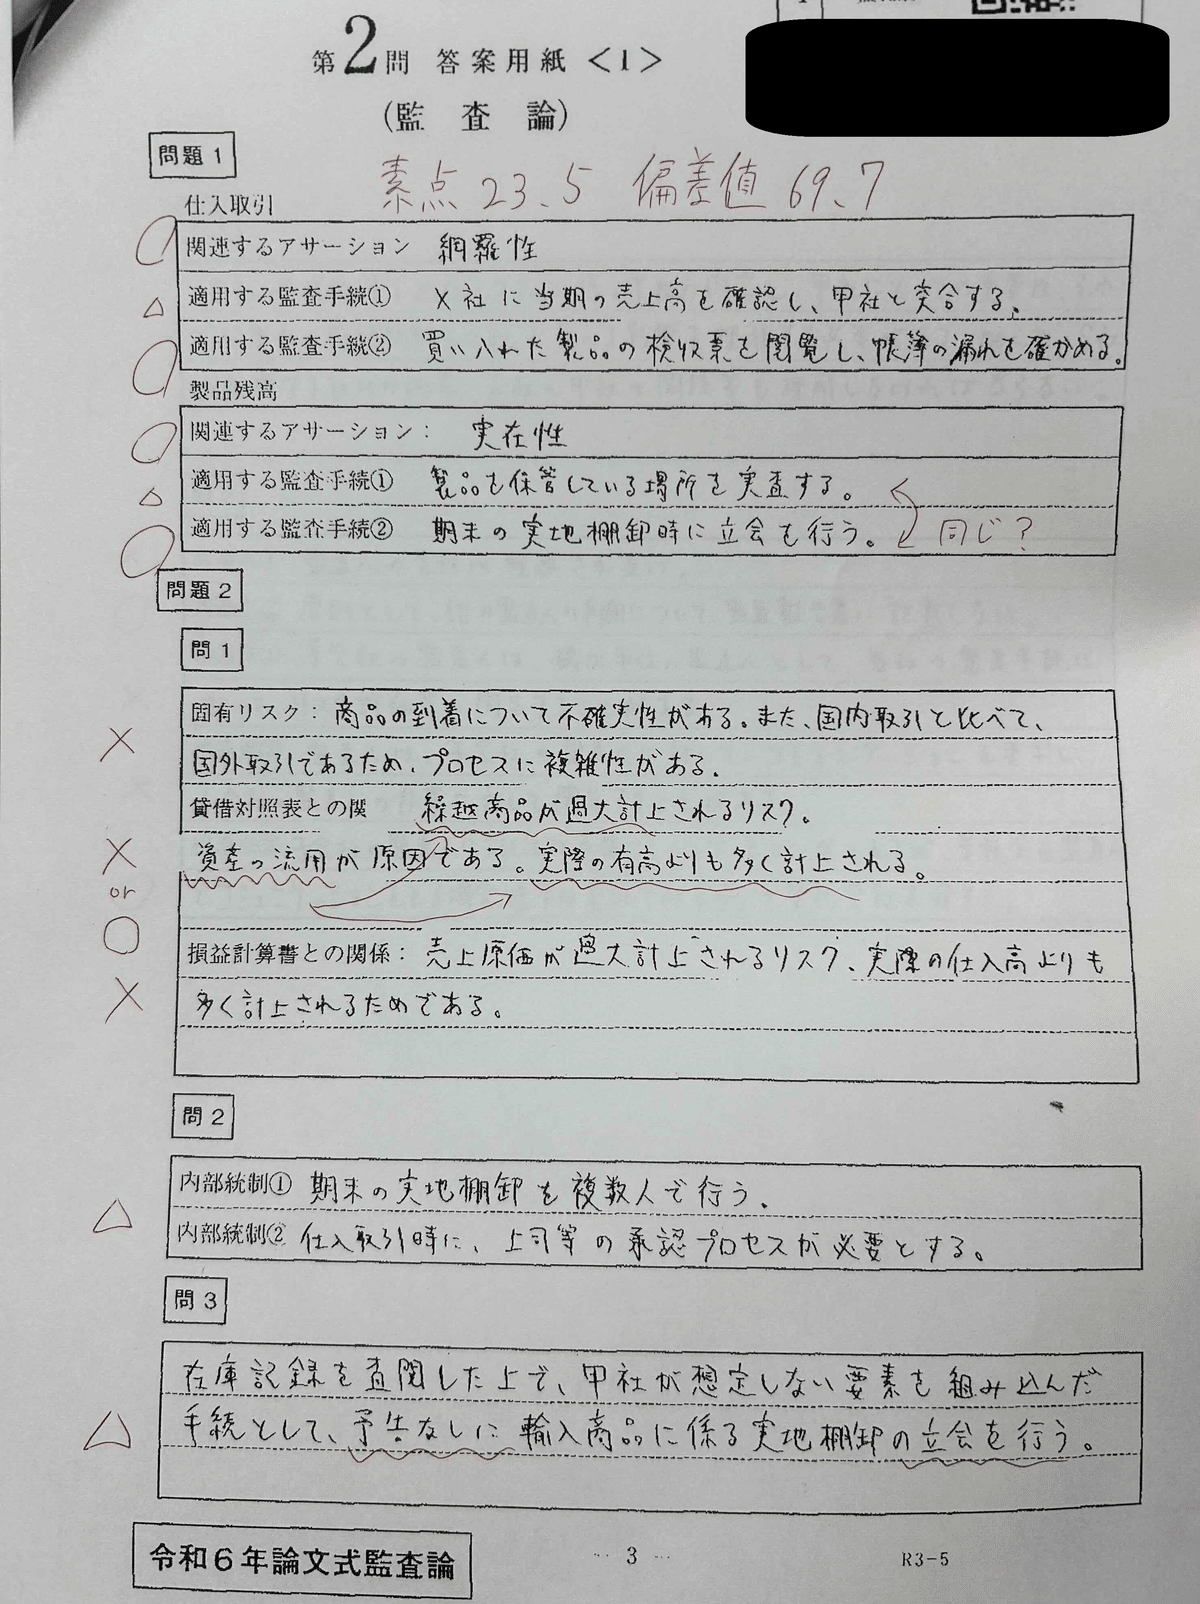 第2問 答案用紙〈1〉
(監査論)
問題1
素点 23.5 偏差値 69.7
仕入取引
関連するアサーション 網羅性
適用する監査手続① X社に当期の売上高を確認し、甲社と突合する。
適用する監査手続② 買い入れた製品の検収票を閲覧し、帳簿の漏れを確かめる。
製品残高
関連するアサーション: 実在性
適用する監査手続① 製品を保管している場所を実査する。
適用する監査手続② 期末の実地棚卸時に立会を行う。 同じ?
問題2
問1
固有リスク: 商品の到着について不確実性がある。また、国内取引と比べて、
国外取引であるため、プロセスに複雑性がある。
貸借対照表との関 繰越商品が過大計上されるリスク。
資産の流用が原因である。実際の有高よりも多く計上される。
or
損益計算書との関係: 売上原価が過大計上されるリスク、実際の仕入高よりも
多く計上されるためである。
問2
内部統制① 期末の実地棚卸を複数人で行う。
内部統制② 仕入取引時に、上司等の承認プロセスが必要とする。
問3
在庫記録を査閲した上で、甲社が想定しない要素を組み込んだ
手続として、予告なしに輸入商品に係る実地棚卸の立会を行う。
令和6年論文式監査論
3
R3-5